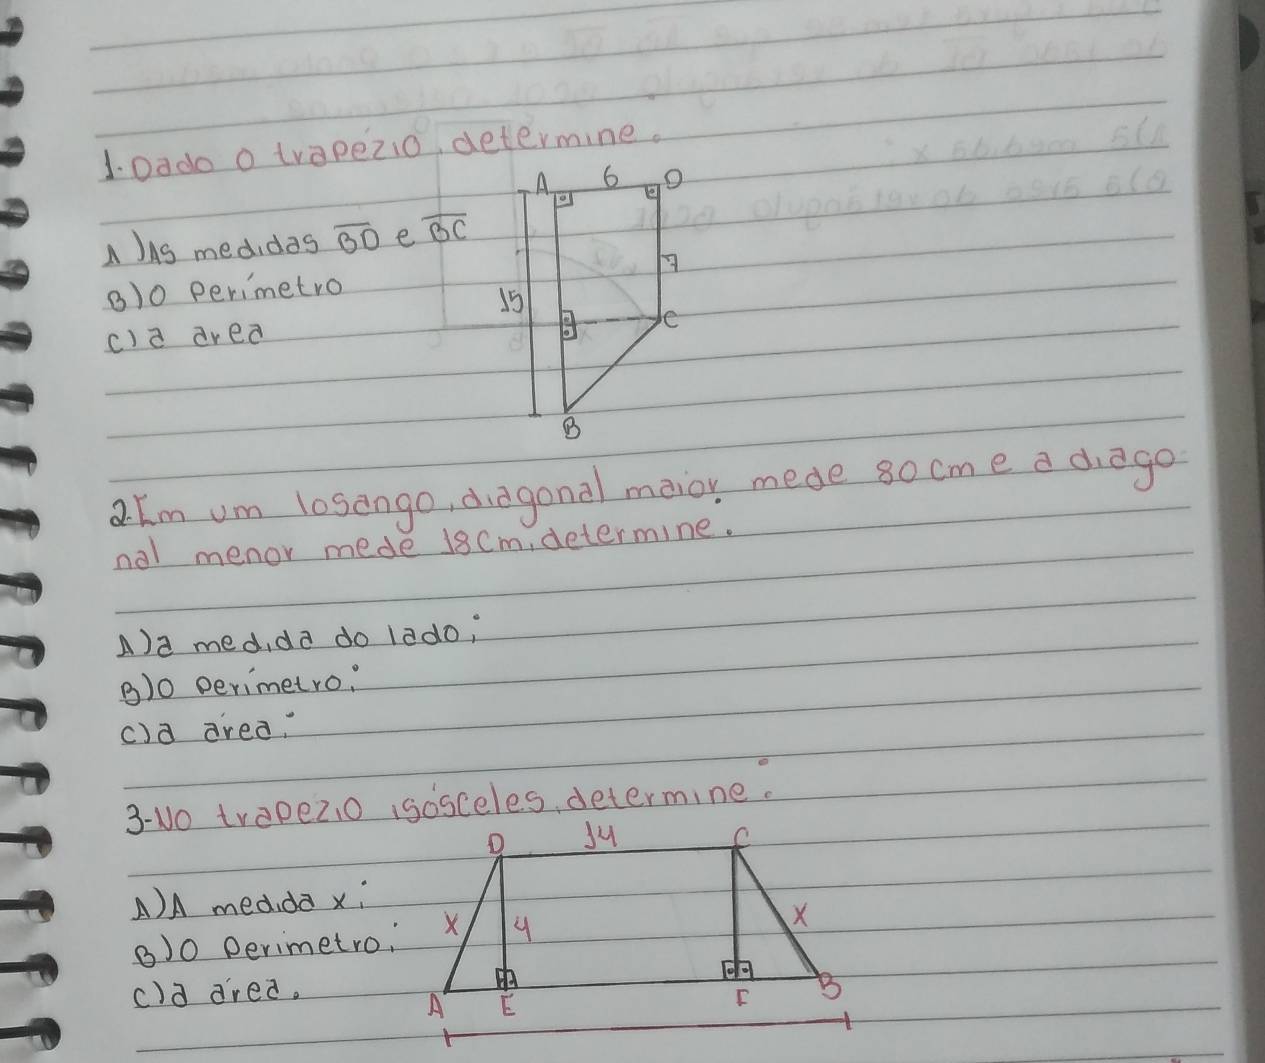 1. Dado o trapézio, determine.
A 6 D
A) As medidas BD e BC
7
B) o perímetro
15
C
C) a area
B
2. Em um losango, diagonal maior mede 80 cm e a diago-
nal menor mede 18 cm, determine:
A) a medida do lado;
B) o perímetro;
C) a área:
3- No trapezio isósceles, determine:
D 14 C
A) A medida x;
X 4 X
B) O perimetro;
C) a área.
A E F B